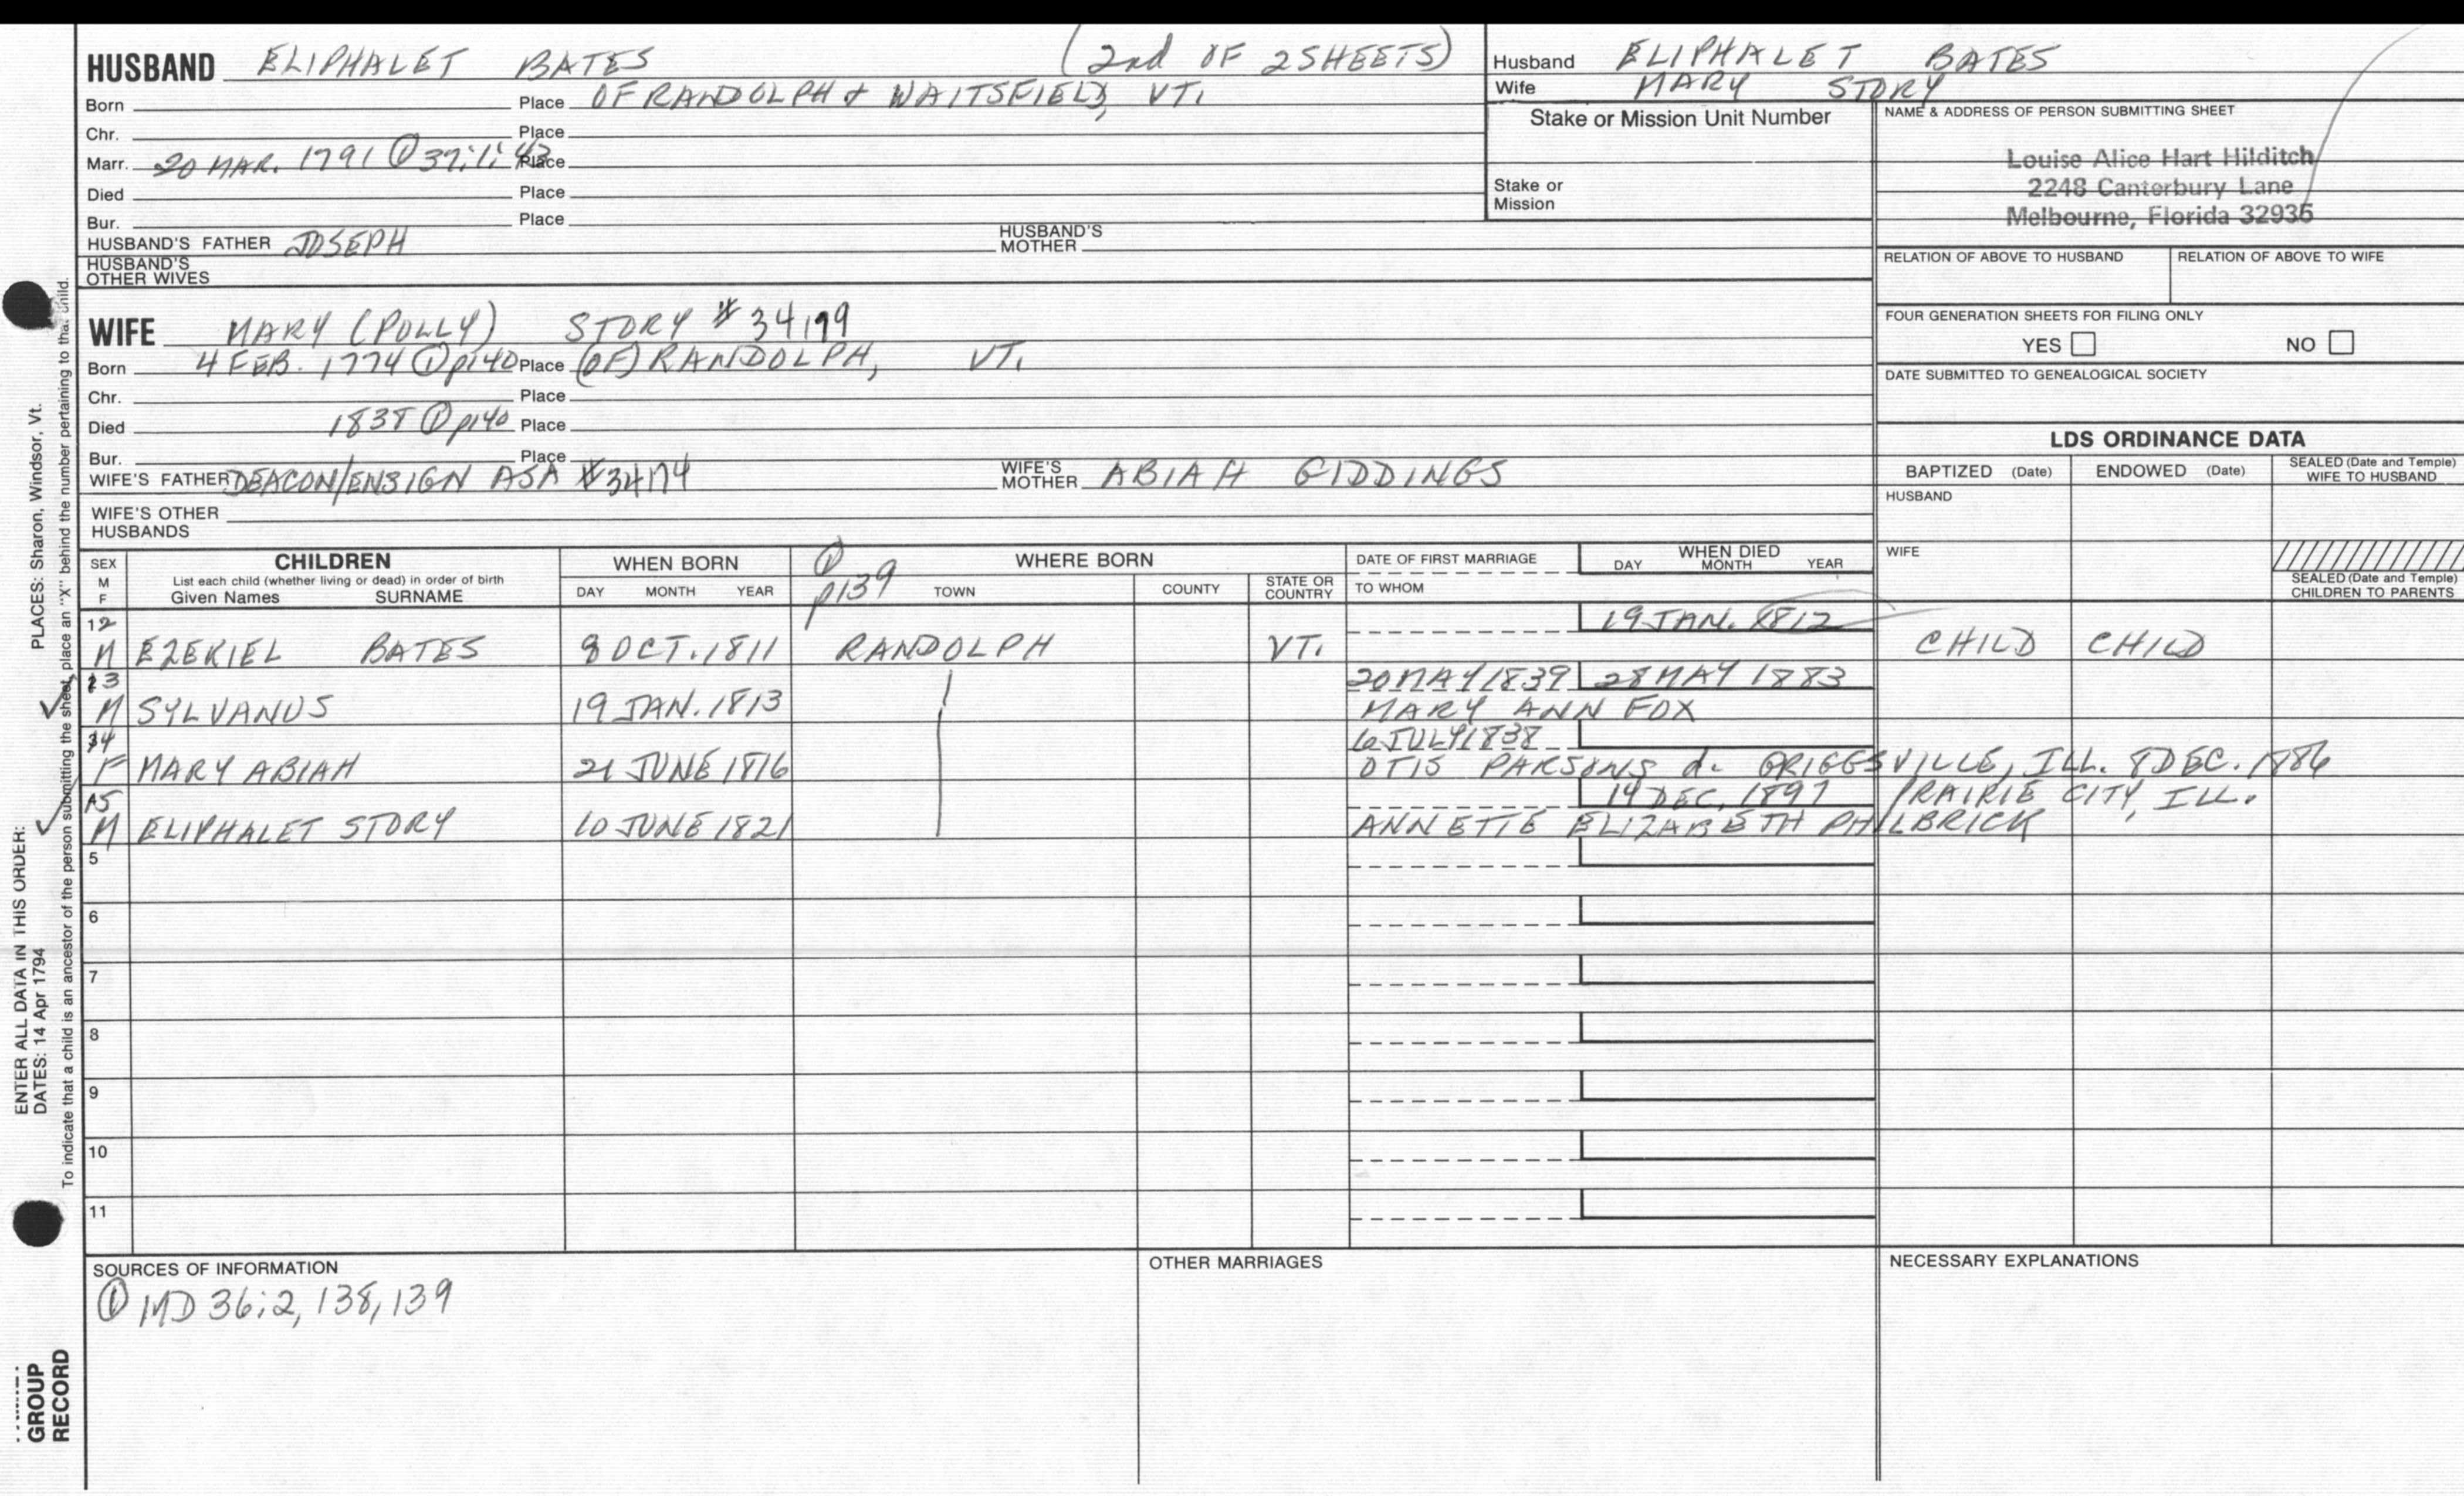 HUSBAND ELIPHALET BATES (2nd OF 2 SHEETS)
Born Place OF RANDOLPH & WAITSFIELD, VT.
Chr. Place
Marr. 20 MAR. 1791 ① 37:1:42 Place
Died Place
Bur. Place
HUSBAND'S FATHER JOSEPH HUSBAND'S MOTHER
HUSBAND'S OTHER WIVES
WIFE MARY (POLLY) STORY #34199
Born 4 FEB. 1774 ① p140 Place (OF) RANDOLPH, VT.
Chr. Place
Died 1838 ① p140 Place
Bur. Place
WIFE'S FATHER DEACON/ENSIGN ASA #34174 WIFE'S MOTHER ABIAH GIDDINGS
WIFE'S OTHER HUSBANDS
Husband ELIPHALET BATES
Wife MARY STORY
Stake or Mission Unit Number
Stake or Mission
NAME & ADDRESS OF PERSON SUBMITTING SHEET
Louise Alice Hart Hilditch
2248 Canterbury Lane
Melbourne, Florida 32935
RELATION OF ABOVE TO HUSBAND RELATION OF ABOVE TO WIFE
FOUR GENERATION SHEETS FOR FILING ONLY
YES NO
DATE SUBMITTED TO GENEALOGICAL SOCIETY
LDS ORDINANCE DATA
BAPTIZED (Date) ENDOWED (Date) SEALED (Date and Temple) WIFE TO HUSBAND
HUSBAND
WIFE
SEALED (Date and Temple) CHILDREN TO PARENTS
SEX M F
CHILDREN
List each child (whether living or dead) in order of birth
Given Names SURNAME
WHEN BORN
DAY MONTH YEAR
① p139
WHERE BORN
TOWN COUNTY STATE OR COUNTRY
DATE OF FIRST MARRIAGE
TO WHOM
WHEN DIED
DAY MONTH YEAR
12 19 JAN. 1812
M EZEKIEL BATES 8 OCT. 1811 RANDOLPH VT. CHILD CHILD
13 20 MAY 1839 28 MAY 1883
M SYLVANUS 19 JAN. 1813 MARY ANN FOX
14 6 JULY 1838
F MARY ABIAH 21 JUNE 1816 OTIS PARSONS d. GRIGGSVILLE, ILL. 8 DEC. 1886
15 14 DEC. 1897 PRAIRIE CITY, ILL.
M ELIPHALET STORY 10 JUNE 1821 ANNETTE ELIZABETH PHILBRICK
5
6
7
8
9
10
11
SOURCES OF INFORMATION
① MD 36:2, 138, 139
OTHER MARRIAGES
NECESSARY EXPLANATIONS
PLACES: Sharon, Windsor, Vt.
To indicate that a child is an ancestor of the person submitting the sheet, place an "X" behind the number pertaining to that child.
ENTER ALL DATA IN THIS ORDER:
DATES: 14 Apr 1794
GROUP
RECORD